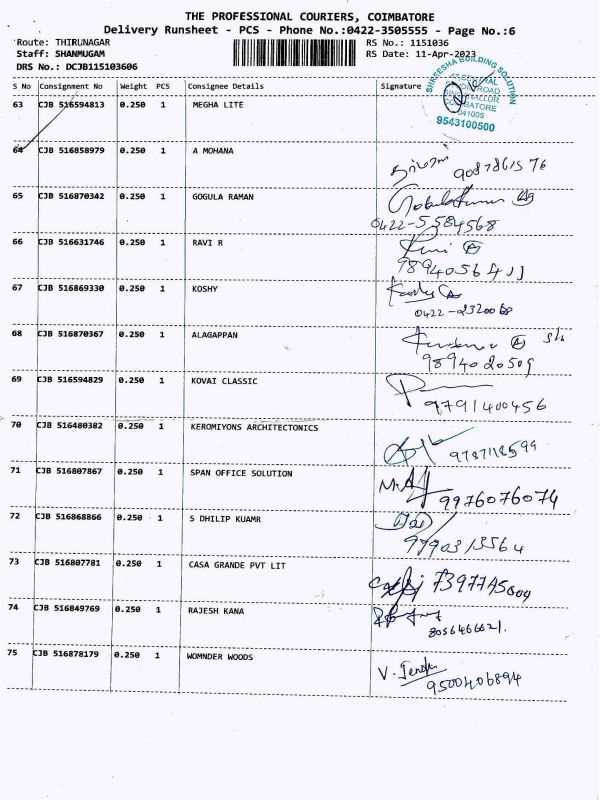 THE PROFESSIONAL COURIERS, COIMBATORE
Delivery Runsheet - PCS - Phone No.:0422-3505555 - Page No.:6
Route: THIRUNAGAR RS No.: 1151036
Staff: SHANMUGAM RS Date: 11-Apr-2023
DRS No.: DCJB115103606
S No Consignment No Weight PCS Consignee Details Signature
SHREESHA BUILDING SOLUTION
641005
9543100500
63 CJB 516594813 0.250 1 MEGHA LITE
64 CJB 516858979 0.250 1 A MOHANA
9087861576
65 CJB 516870342 0.250 1 GOGULA RAMAN
0422-5584568
66 CJB 516631746 0.250 1 RAVI R
9894056411
67 CJB 516869330 0.250 1 KOSHY
0422-2320068
68 CJB 516870367 0.250 1 ALAGAPPAN
9894020509
69 CJB 516594829 0.250 1 KOVAI CLASSIC
9791400456
70 CJB 516480382 0.250 1 KEROMIYONS ARCHITECTONICS
9787118599
71 CJB 516807867 0.250 1 SPAN OFFICE SOLUTION
9976076074
72 CJB 516868866 0.250 1 S DHILIP KUAMR
9790313564
73 CJB 516807781 0.250 1 CASA GRANDE PVT LIT
74 CJB 516849769 0.250 1 RAJESH KANA
8056466621.
75 CJB 516878179 0.250 1 WOMNDER WOODS
9500406894